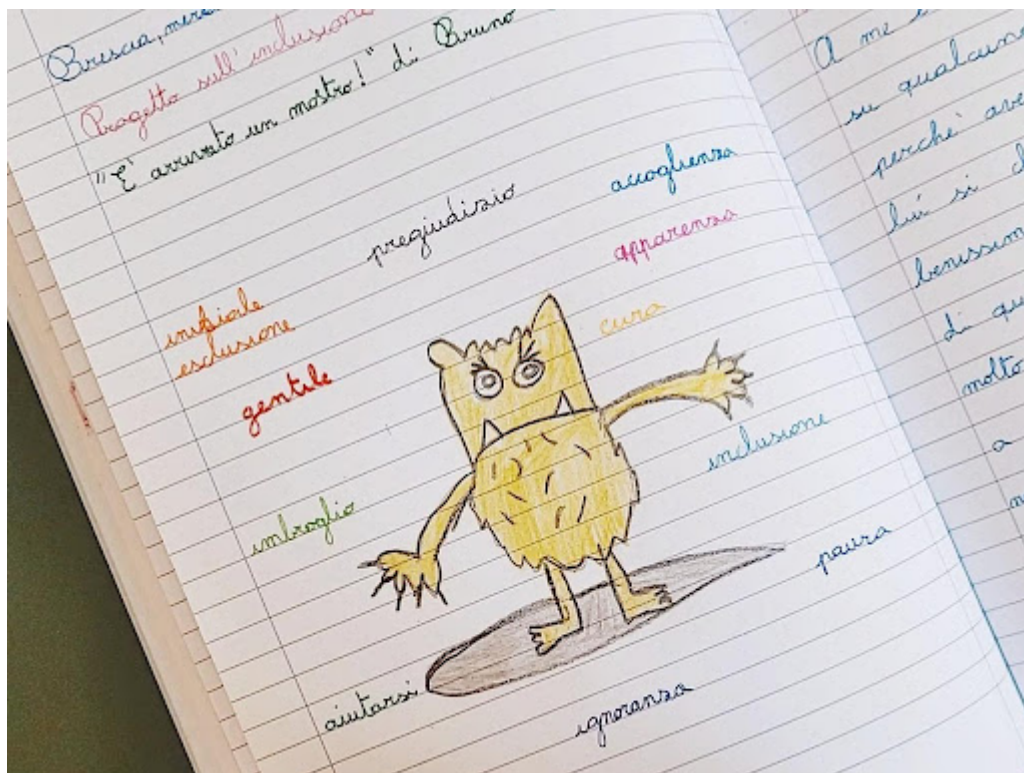 Brescia, merc
Progetto sull'inclusione
"È arrivato un mostro!" di Bruno
pregiudizio
accoglienza
apparenza
iniziale
esclusione
cura
gentile
inclusione
imbroglio
paura
aiutarsi
ignoranza
A me
su qualcuno
perché ave
lui si
benissim
di qu
molto
a